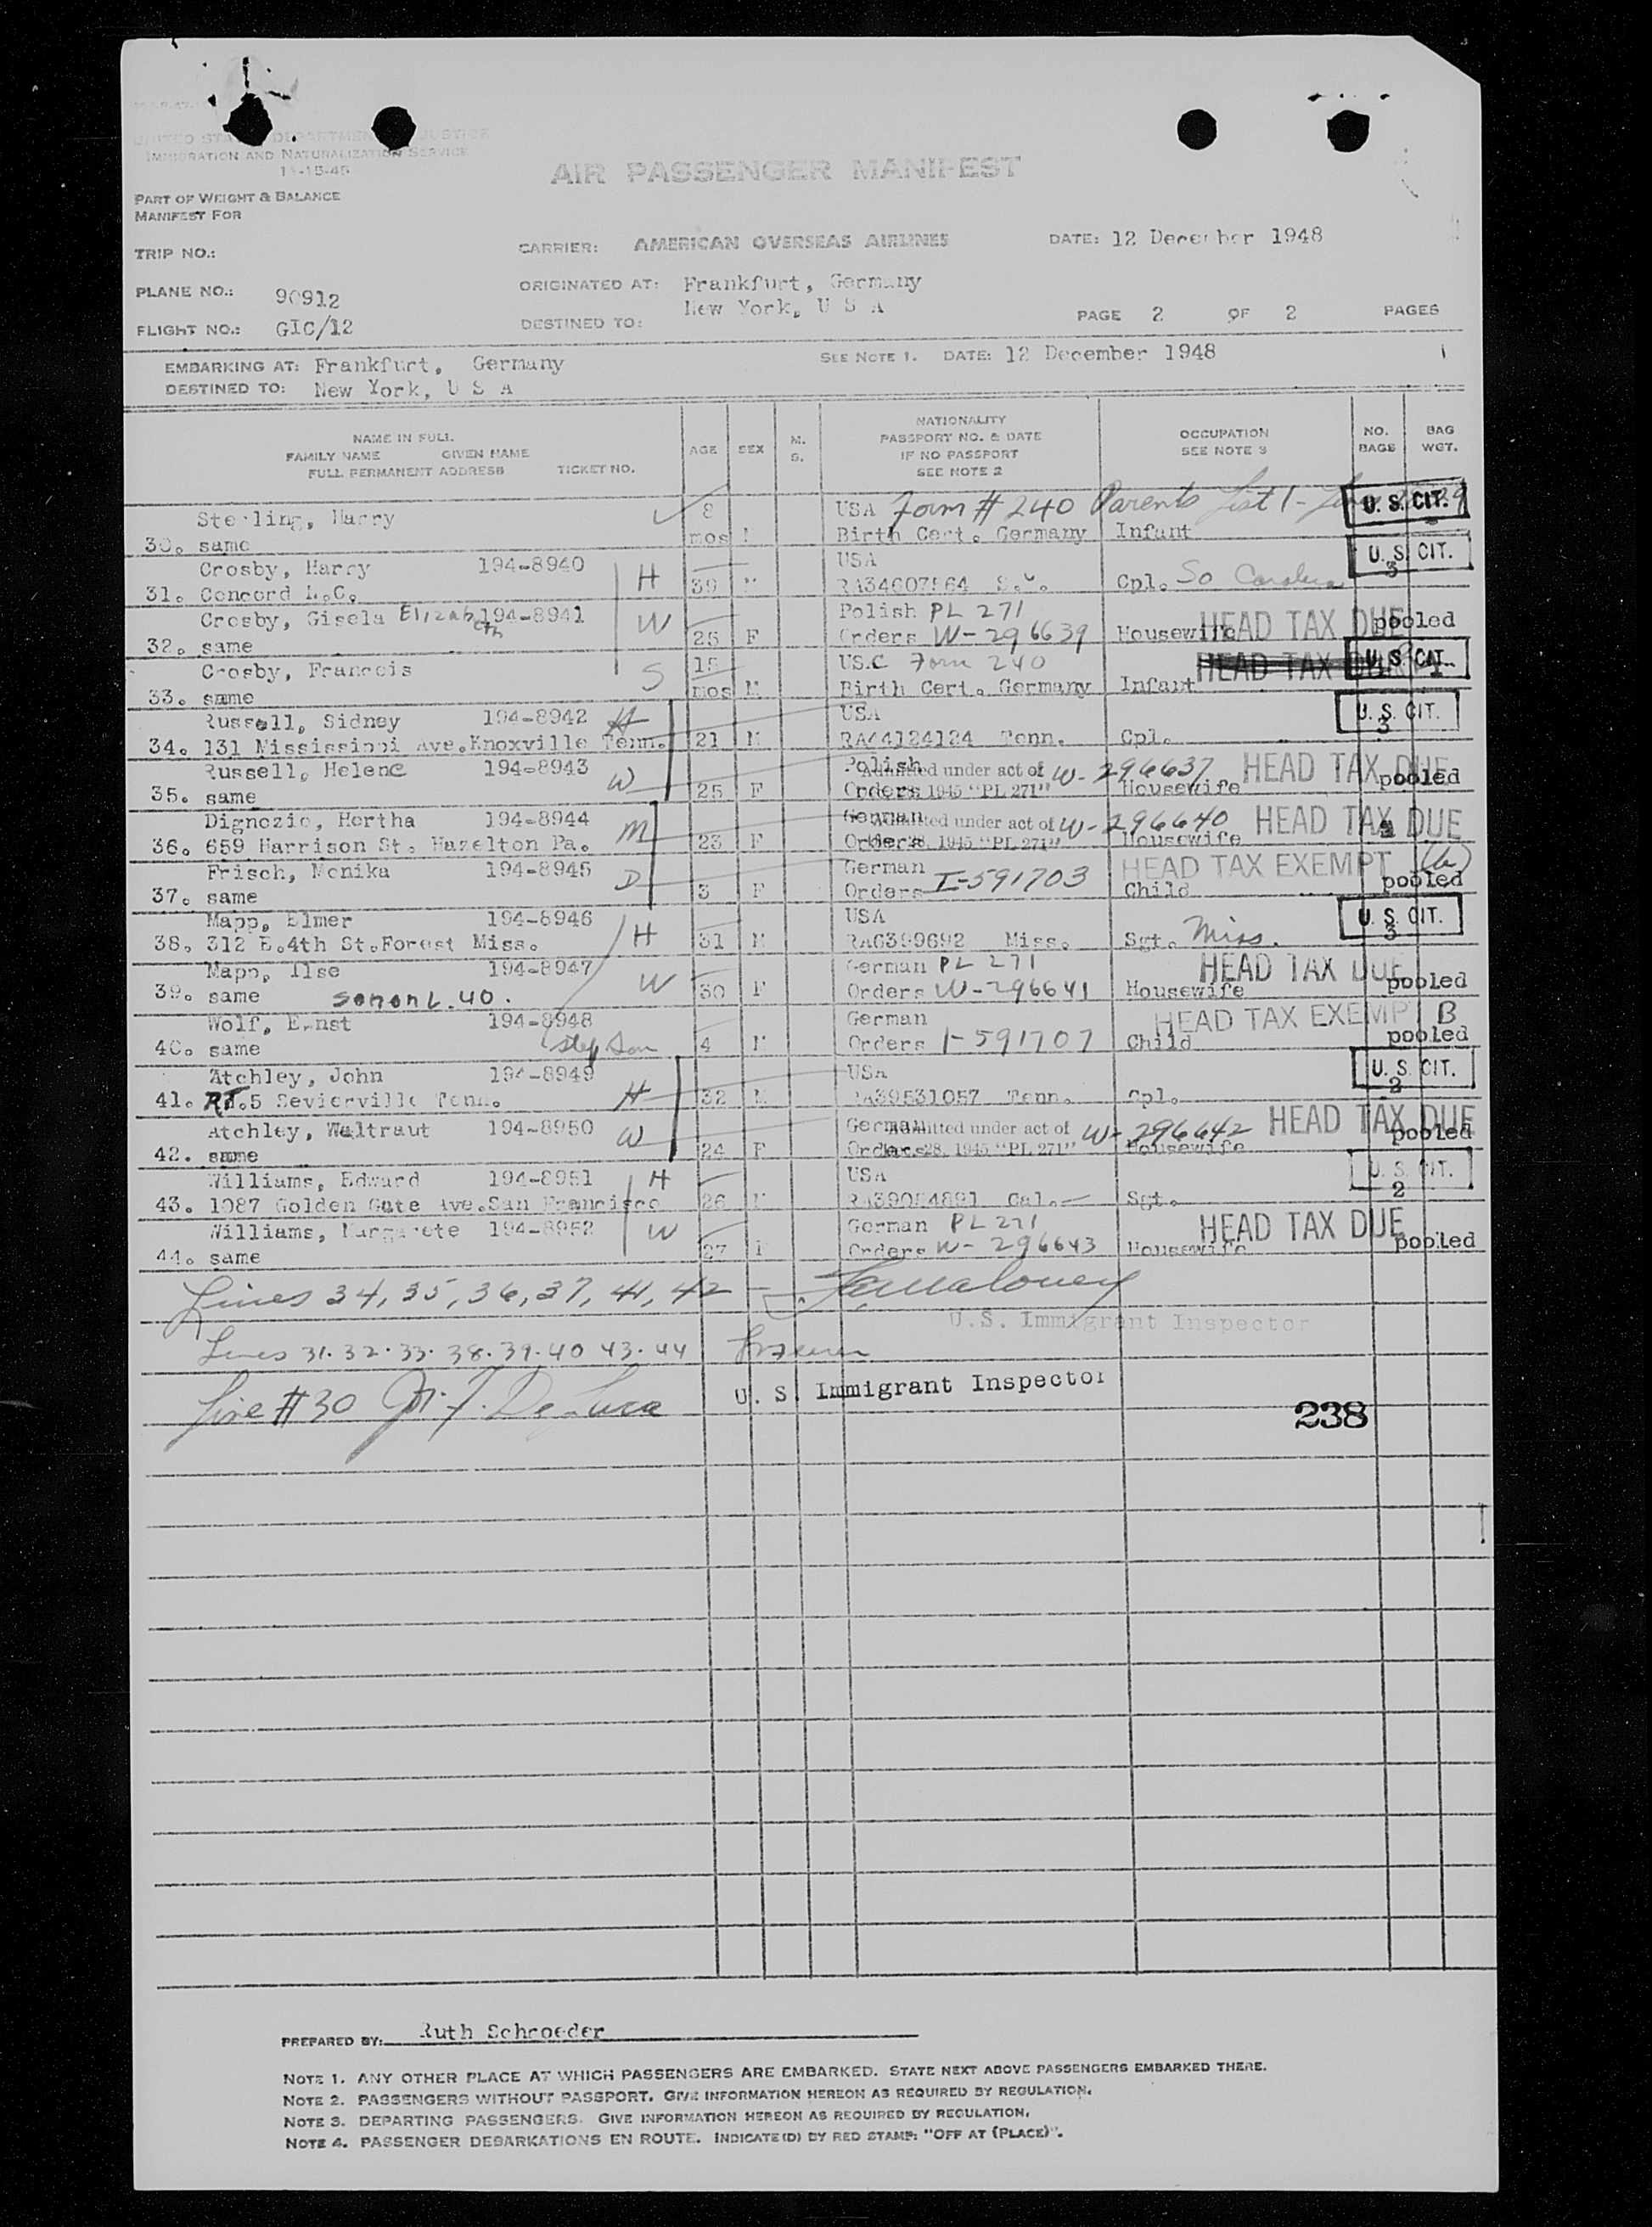 UNITED STATES DEPARTMENT OF JUSTICE
IMMIGRATION AND NATURALIZATION SERVICE
11-15-45
AIR PASSENGER MANIFEST
PART OF WEIGHT & BALANCE
MANIFEST FOR
TRIP NO.:
CARRIER: AMERICAN OVERSEAS AIRLINES
DATE: 12 December 1948
PLANE NO.: 90912
ORIGINATED AT: Frankfurt, Germany
FLIGHT NO.: GIC/12
DESTINED TO: New York, U S A
PAGE 2 OF 2 PAGES
EMBARKING AT: Frankfurt, Germany
SEE NOTE 1. DATE: 12 December 1948
DESTINED TO: New York, U S A
NAME IN FULL
FAMILY NAME GIVEN NAME
FULL PERMANENT ADDRESS TICKET NO.
AGE SEX M. S.
NATIONALITY
PASSPORT NO. & DATE
IF NO PASSPORT
SEE NOTE 2
OCCUPATION
SEE NOTE 3
NO. BAGS
BAG WGT.
Sterling, Harry 8 USA Form # 240 Parents List 1 - U. S. CIT.
30. same mos M Birth Cert. Germany Infant
Crosby, Harry 194-8940 H USA U. S. CIT.
31. Concord N.C. 39 M RA34607564 Cpl. So Carolina 3
Crosby, Gisela Elizabeth 194-8941 W Polish PL 271 HEAD TAX DUE pooled
32. same 25 F Orders W-296639 Housewife
Crosby, Francois S 15 US.C Form 240 HEAD TAX DUE U. S. CIT.
33. same mos M Birth Cert. Germany Infant 1
Russell, Sidney 194-8942 H USA U. S. CIT.
34. 131 Mississippi Ave.Knoxville Tenn. 21 M RA44124124 Tenn. Cpl. 3
Russell, Helene 194-8943 W Polish Admitted under act of W-296637 HEAD TAX DUE pooled
35. same 25 F Orders 1945 "PL 271" Housewife
Dignozio, Hertha 194-8944 M German Admitted under act of W-296640 HEAD TAX DUE
36. 659 Harrison St. Hazelton Pa. 23 F Orders 28, 1945 "PL 271" Housewife
Frisch, Monika 194-8945 D German HEAD TAX EXEMPT (b)
37. same 3 F Orders I-591703 Child pooled
Mapp, Elmer 194-8946 H USA U. S. CIT.
38. 312 E.4th St.Forest Miss. 31 M RA6399692 Miss. Sgt. Miss. 3
Mapp, Ilse 194-8947 W German PL 271 HEAD TAX DUE pooled
39. same son on L. 40. 30 F Orders W-296641 Housewife
Wolf, Ernst 194-8948 German HEAD TAX EXEMPT B
40. same step son 4 M Orders I-591707 Child pooled
Atchley, John 194-8949 H USA U. S. CIT.
41. RT.5 Sevierville Tenn. 32 M RA39531057 Tenn. Cpl. 2
Atchley, Waltraut 194-8950 W German Admitted under act of W-296642 HEAD TAX DUE pooled
42. same 24 F Orders 28, 1945 "PL 271" Housewife
Williams, Edward 194-8951 H USA U. S. CIT.
43. 1087 Golden Gate Ave.San Francisco 26 M RA39054891 Cal. Sgt. 2
Williams, Margarete 194-8952 W German PL 271 HEAD TAX DUE
44. same 27 F Orders W-296643 Housewife pooled
Lines 34, 35, 36, 37, 41, 42 - Maloney
U.S. Immigrant Inspector
Lines 31. 32. 33. 38. 39. 40 43. 44
U. S. Immigrant Inspector
Line # 30 De Luca
238
PREPARED BY: Ruth Schroeder
NOTE 1. ANY OTHER PLACE AT WHICH PASSENGERS ARE EMBARKED. STATE NEXT ABOVE PASSENGERS EMBARKED THERE.
NOTE 2. PASSENGERS WITHOUT PASSPORT. GIVE INFORMATION HEREON AS REQUIRED BY REGULATION.
NOTE 3. DEPARTING PASSENGERS. GIVE INFORMATION HEREON AS REQUIRED BY REGULATION.
NOTE 4. PASSENGER DEBARKATIONS EN ROUTE. INDICATE(D) BY RED STAMP: "OFF AT (PLACE)".